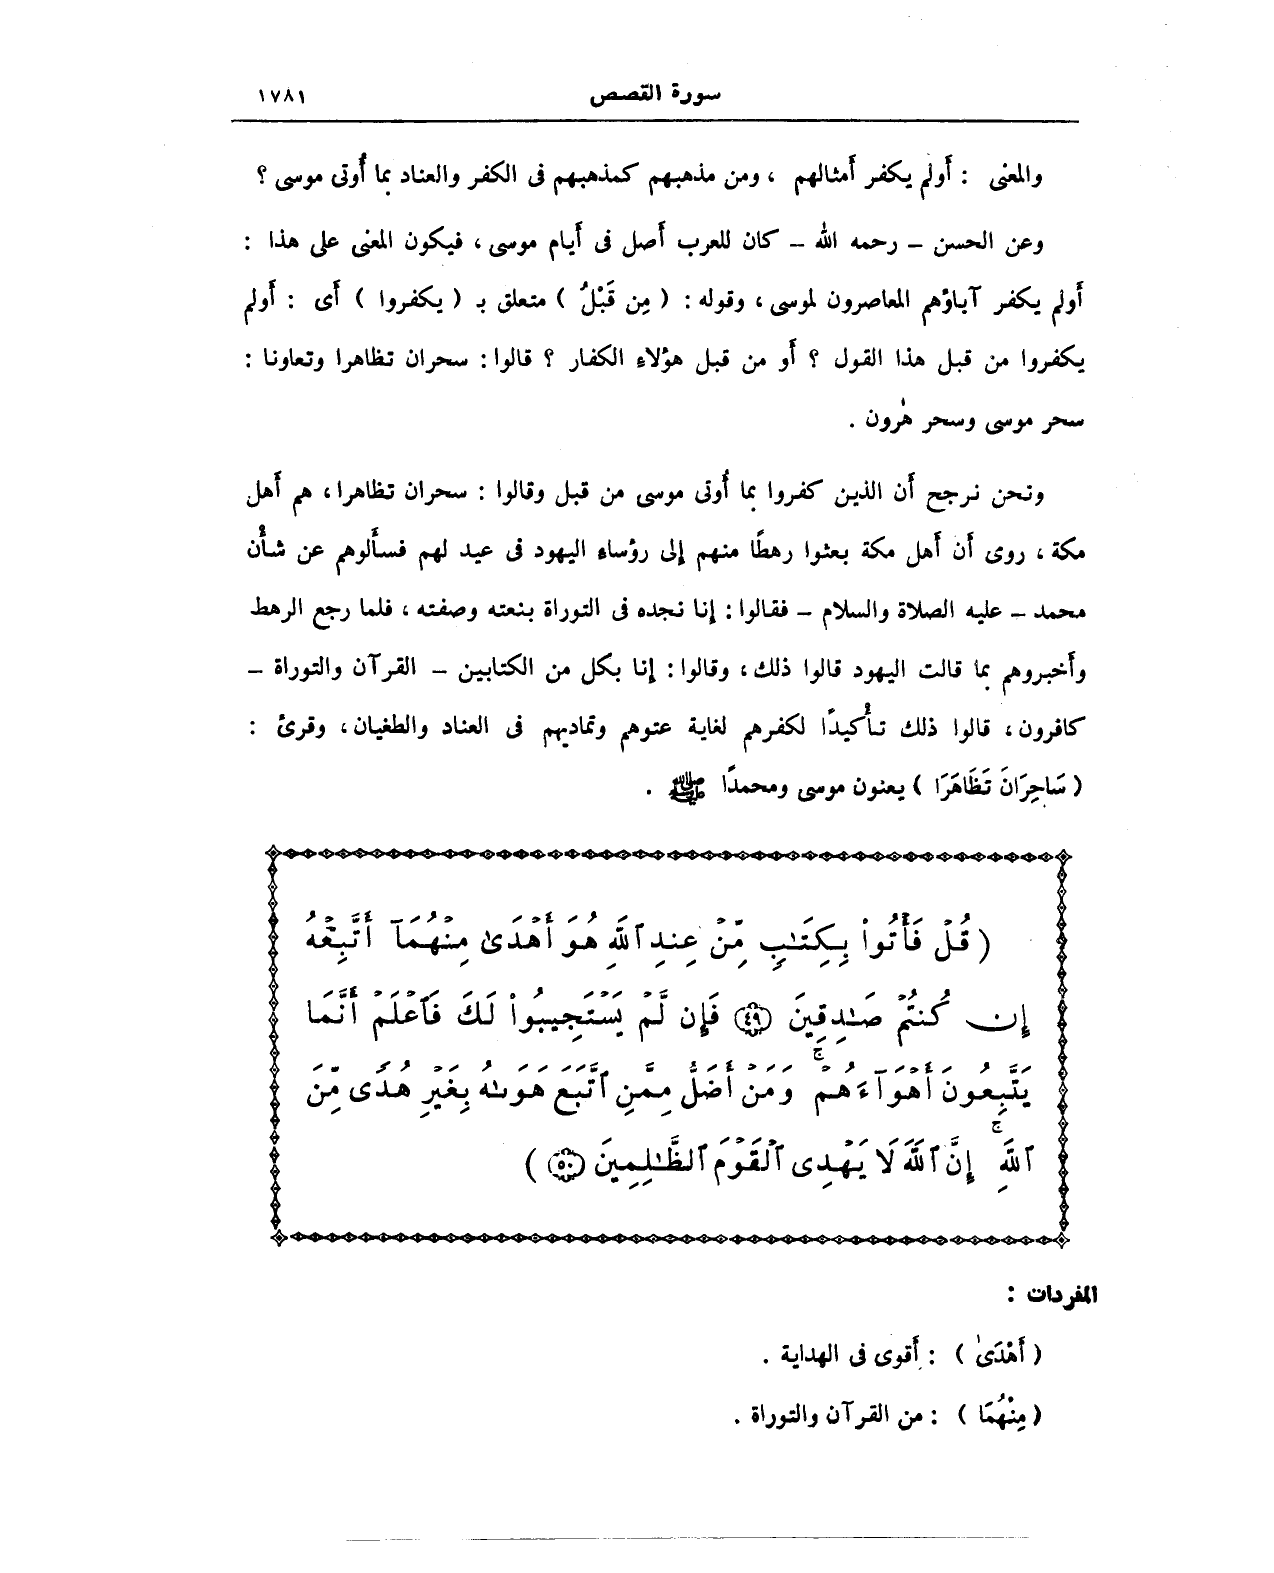 سورة القصص ١٧٨١
والمعنى : أَولم يكفر أَمثالهم ، ومن مذهبهم كمذهبهم فى الكفر والعناد بما أُوتى موسى ؟
وعن الحسن – رحمه الله – كان للعرب أَصل فى أَيام موسى ، فيكون المعنى على هذا :
أَولم يكفر آباؤهم المعاصرون لموسى ، وقوله : ( مِن قَبْلُ ) متعلق بـ ( يكفروا ) أَى : أَولم
يكفروا من قبل هذا القول ؟ أَو من قبل هؤلاء الكفار ؟ قالوا : سحران تظاهرا وتعاونا :
سحر موسى وسحر هٰرون .
ونحن نرجح أَن الذين كفروا بما أُوتى موسى من قبل وقالوا : سحران تظاهرا ، هم أَهل
مكة ، روى أَن أَهل مكة بعثوا رهطًا منهم إلى رؤساء اليهود فى عيد لهم فسأَلوهم عن شأْن
محمد – عليه الصلاة والسلام – فقالوا : إنا نجده فى التوراة بنعته وصفته ، فلما رجع الرهط
وأَخبروهم بما قالت اليهود قالوا ذلك ، وقالوا : إنا بكل من الكتابين – القرآن والتوراة –
كافرون ، قالوا ذلك تأْكيدًا لكفرهم لغاية عتوهم وتماديهم فى العناد والطغيان ، وقرئ :
( سَاحِرَانَ تَظَاهَرَا ) يعنون موسى ومحمدًا ﷺ .
( قُلْ فَأْتُوا۟ بِكِتَٰبٍ مِّنْ عِندِ ٱللَّهِ هُوَ أَهْدَىٰ مِنْهُمَآ أَتَّبِعْهُ
إِن كُنتُمْ صَٰدِقِينَ ﴿٤٩﴾ فَإِن لَّمْ يَسْتَجِيبُوا۟ لَكَ فَٱعْلَمْ أَنَّمَا
يَتَّبِعُونَ أَهْوَآءَهُمْ ۚ وَمَنْ أَضَلُّ مِمَّنِ ٱتَّبَعَ هَوَىٰهُ بِغَيْرِ هُدًى مِّنَ
ٱللَّهِ ۚ إِنَّ ٱللَّهَ لَا يَهْدِى ٱلْقَوْمَ ٱلظَّٰلِمِينَ ﴿٥٠﴾ )
المفردات :
( أَهْدَىٰ ) : أَقوى فى الهداية .
( مِنْهُمَا ) : من القرآن والتوراة .